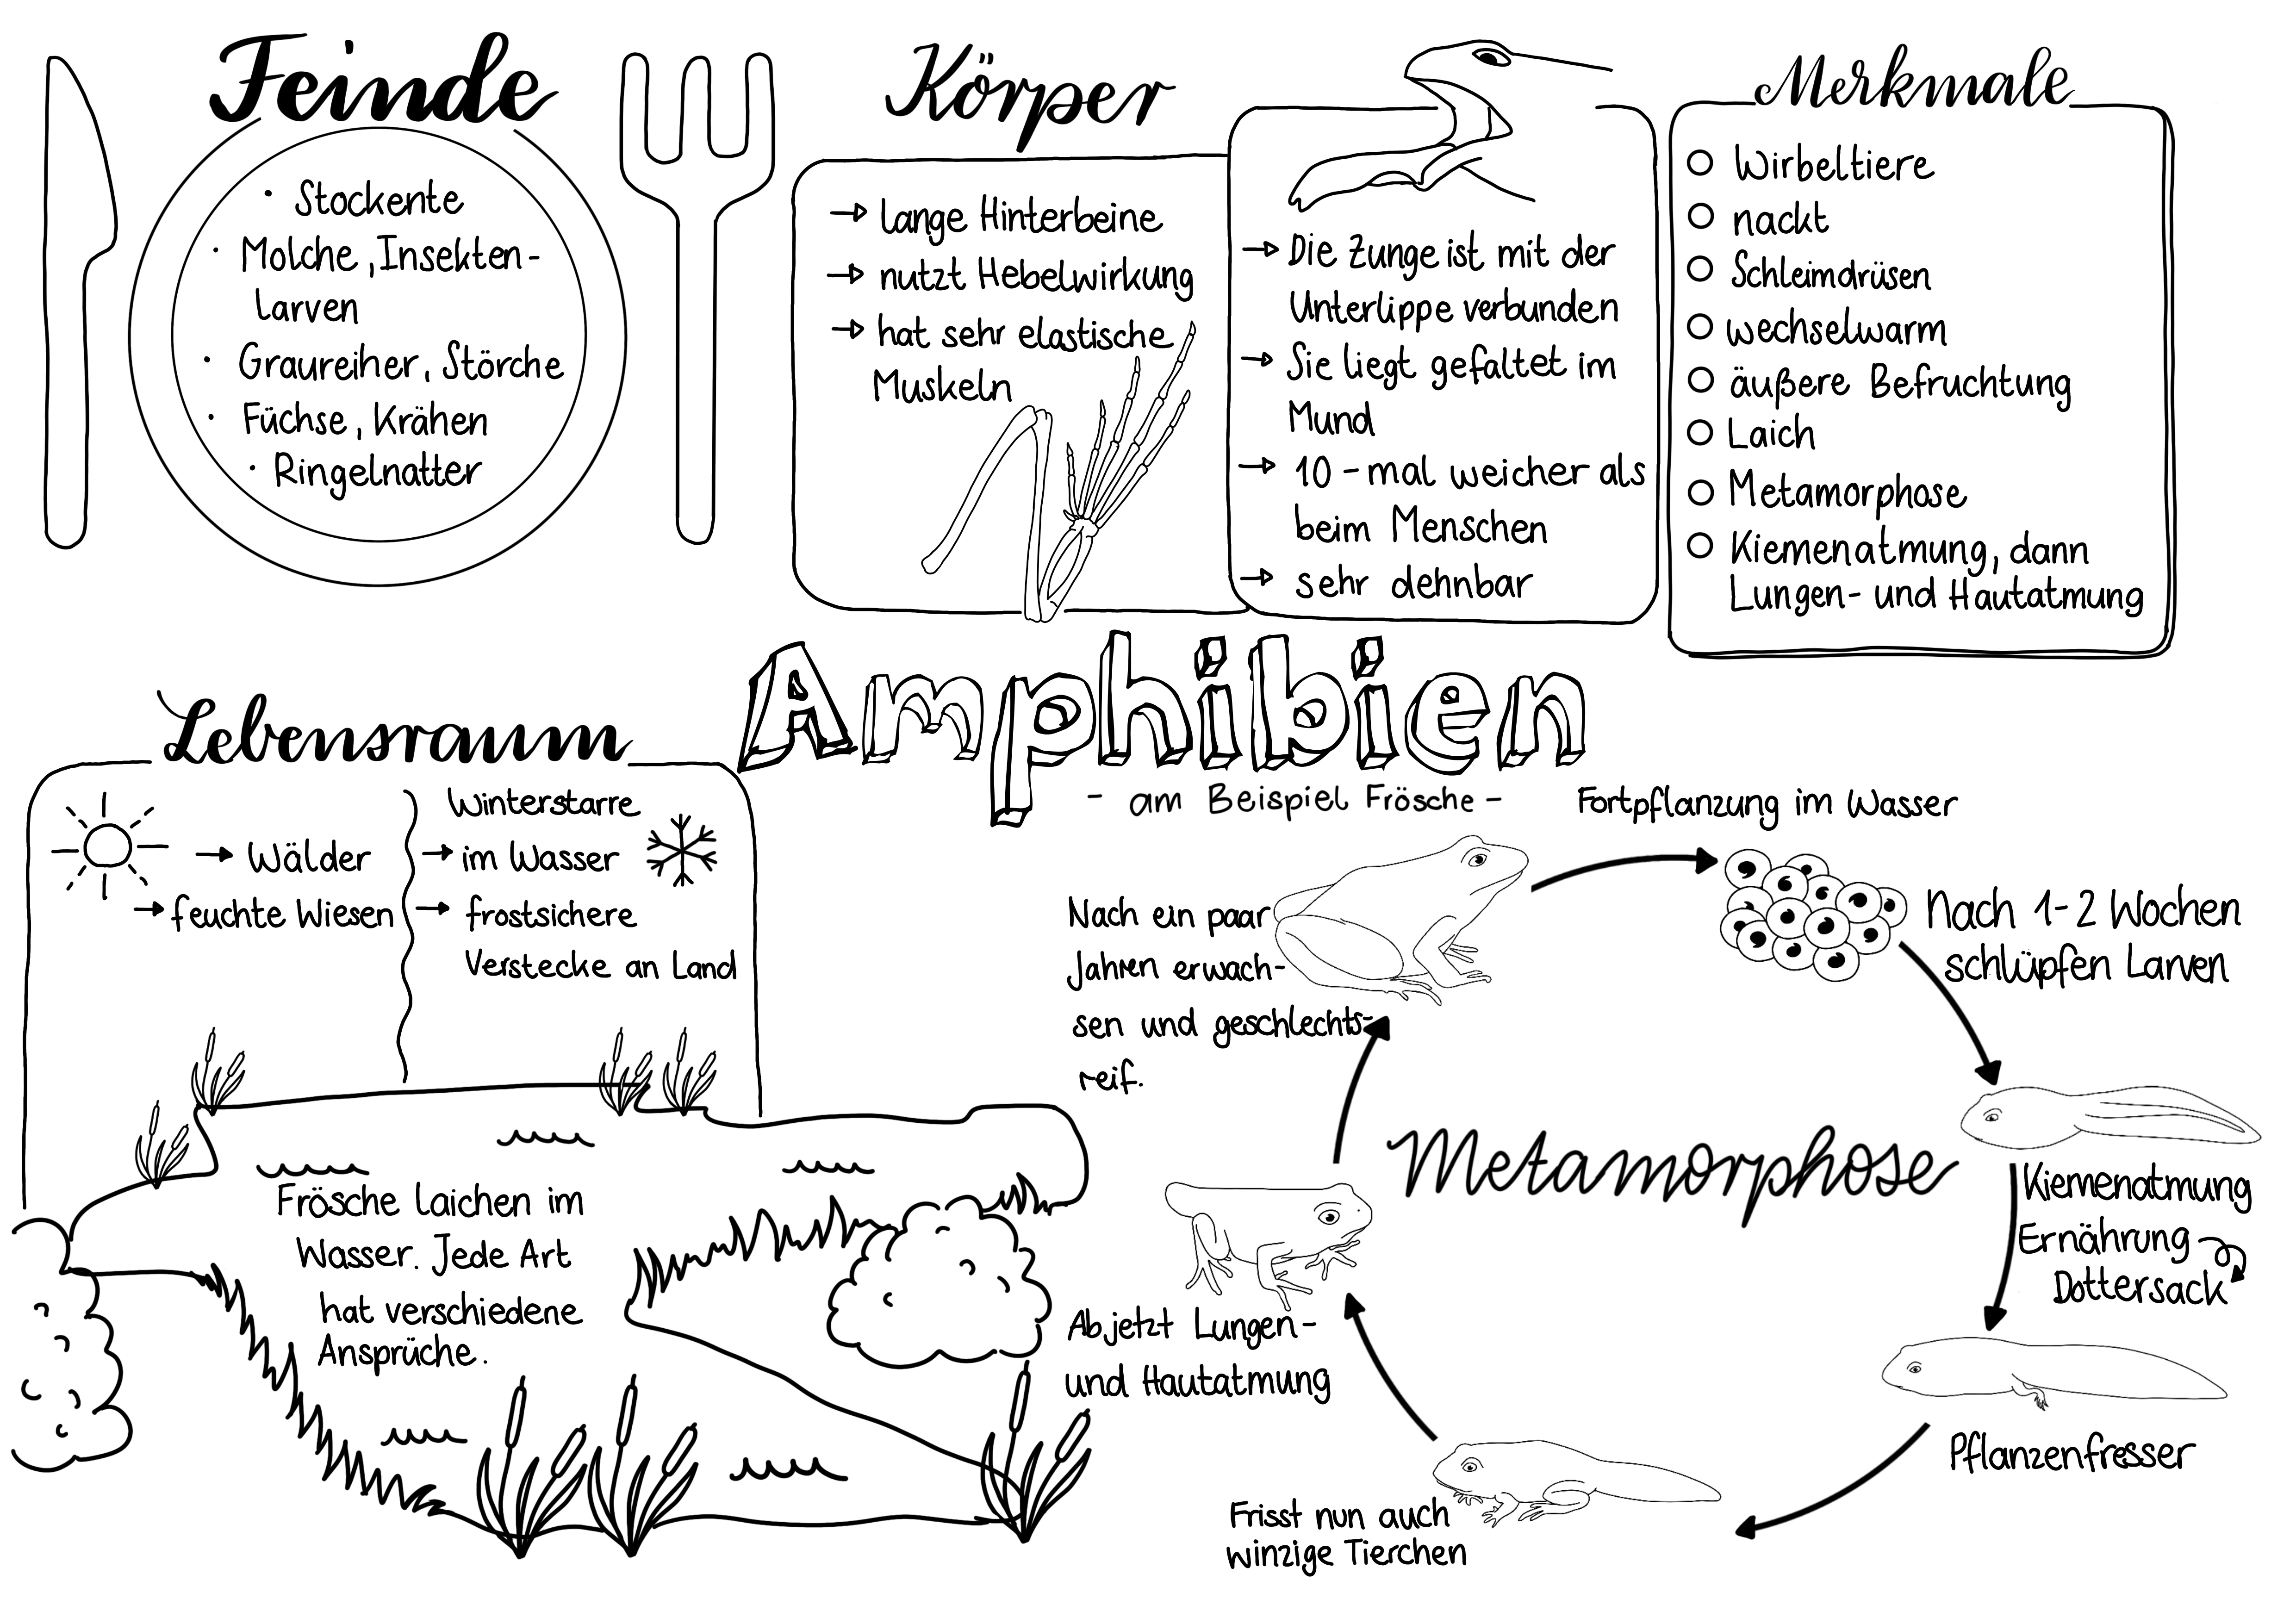 Feinde
• Stockente
• Molche, Insekten-
Larven
• Graureiher, Störche
• Füchse, Krähen
• Ringelnatter
Körper
→ lange Hinterbeine
→ nutzt Hebelwirkung
→ hat sehr elastische
Muskeln
→ Die Zunge ist mit der
Unterlippe verbunden
→ Sie liegt gefaltet im
Mund
→ 10-mal weicher als
beim Menschen
→ sehr dehnbar
Merkmale
○ Wirbeltiere
○ nackt
○ Schleimdrüsen
○ wechselwarm
○ äußere Befruchtung
○ Laich
○ Metamorphose
○ Kiemenatmung, dann
Lungen- und Hautatmung
Amphibien
- am Beispiel Frösche -
Lebensraum
→ Wälder
→ feuchte Wiesen
Winterstarre
→ im Wasser
→ frostsichere
Verstecke an Land
Frösche laichen im
Wasser. Jede Art
hat verschiedene
Ansprüche.
Metamorphose
Fortpflanzung im Wasser
Nach 1-2 Wochen
schlüpfen Larven
Kiemenatmung
Ernährung
Dottersack
Pflanzenfresser
Frisst nun auch
winzige Tierchen
Ab jetzt Lungen-
und Hautatmung
Nach ein paar
Jahren erwach-
sen und geschlechts-
reif.